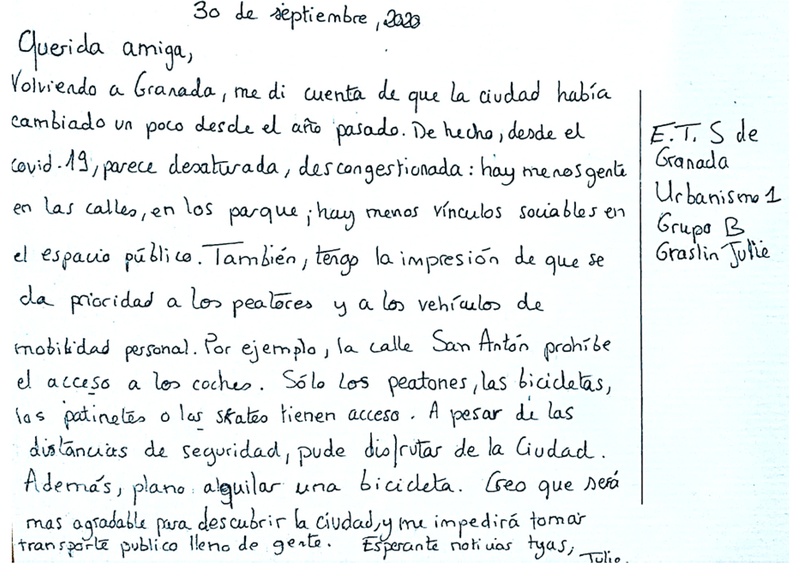 30 de septiembre, 2020
Querida amiga,
Volviendo a Granada, me di cuenta de que la ciudad había
cambiado un poco desde el año pasado. De hecho, desde el
covid-19, parece desaturada, descongestionada: hay menos gente
en las calles, en los parque; hay menos vínculos sociables en
el espacio público. También, tengo la impresión de que se
da prioridad a los peatores y a los vehículos de
mobilidad personal. Por ejemplo, la calle San Antón prohíbe
el acceso a los coches. Sólo los peatones, las bicicletas,
los patinetes o las skates tienen acceso. A pesar de las
distancias de seguridad, pude disfrutar de la Ciudad.
Además, plano alquilar una bicicleta. Creo que será
mas agradable para descubrir la ciudad, y me impedirá tomar
transporte publico lleno de gente. Esperante noticias tyas,
Julie.
E.T.S de
Granada
Urbanismo 1
Grupo B
Graslin Julie